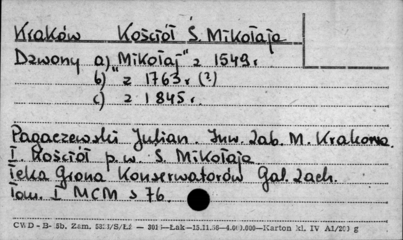 Kraków Kościół Ś. Mikołaja
Dzwony a) "Mikołaj" z 1549 r
b) z 1763 r (?)
c) z 1845 r.
Pagaczewski Julian. Inw. zab. M. Krakowa
I. Kościół p.w. Ś. Mikołaja
Teka Grona Konserwatorów Gal. Zach.
Tom. I MCM s 76.
CWD - B- 5b. Zam. — Łak — 4.000.000 — Karton kl. IV A1/200 g